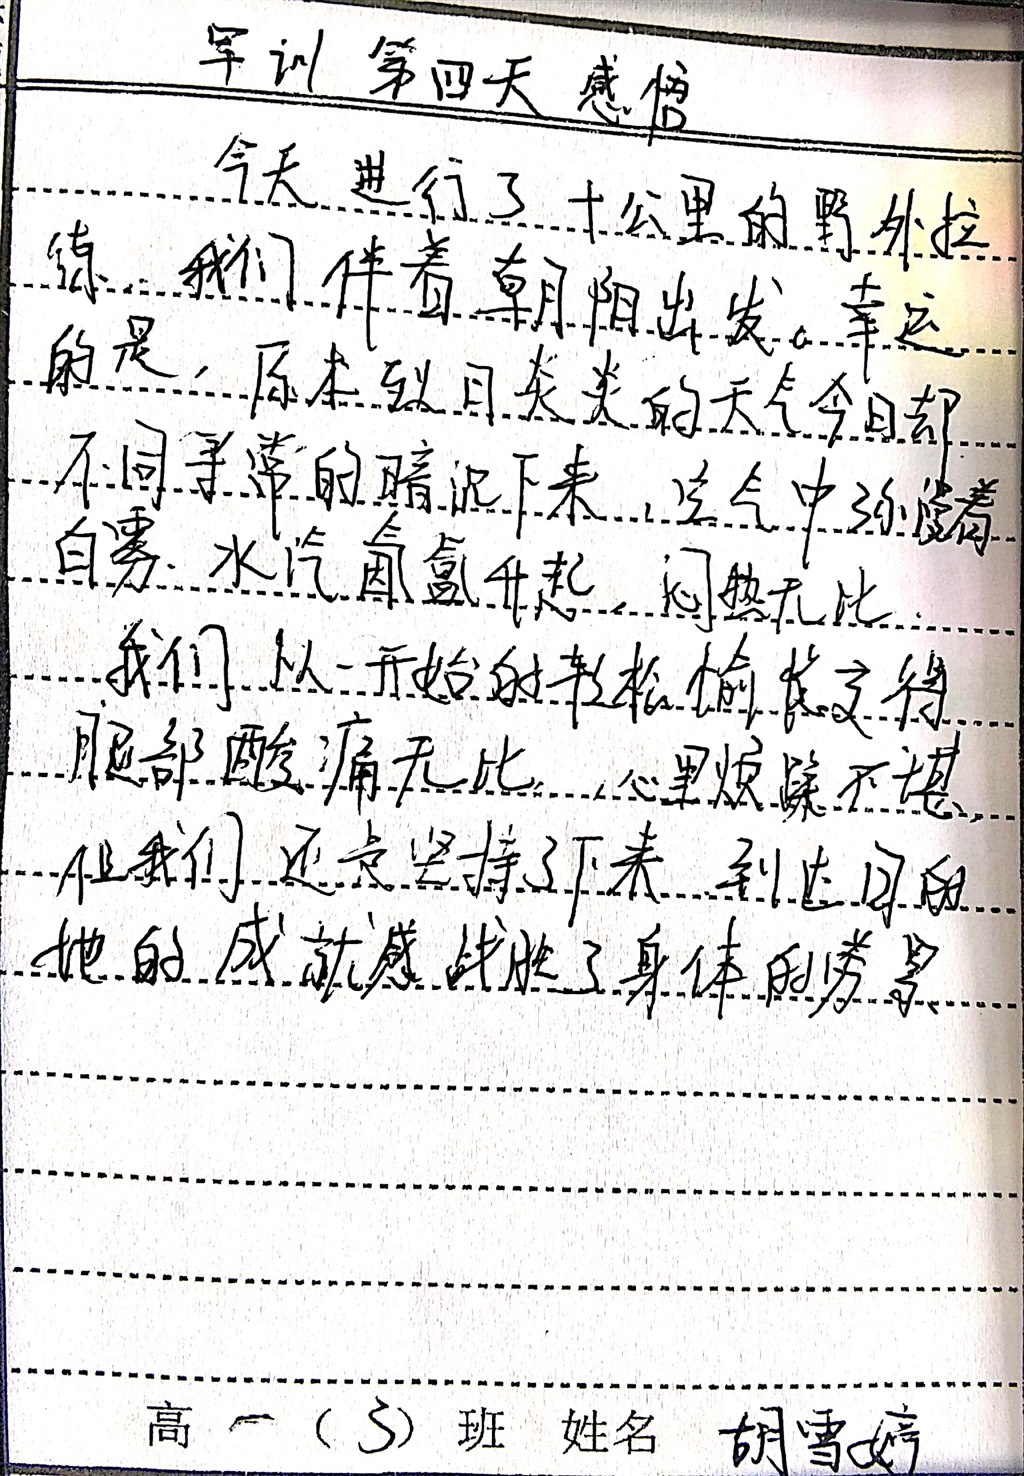 军训 第四天 感悟
今天 进行了 十公里的野外拉
练. 我们 伴着 朝阳出发。幸运
的是, 原本烈日炎炎的天气今日却
不同寻常的暗沉下来, 空气中弥漫着
白雾. 水汽氤氲升起, 闷热无比.
我们从一开始的轻松愉悦变得
腿部酸痛无比, 心里烦躁不堪,
但我们还是坚持了下来 到达目的
地的成就感战胜了身体的劳累
高一(3)班 姓名 胡雪婷